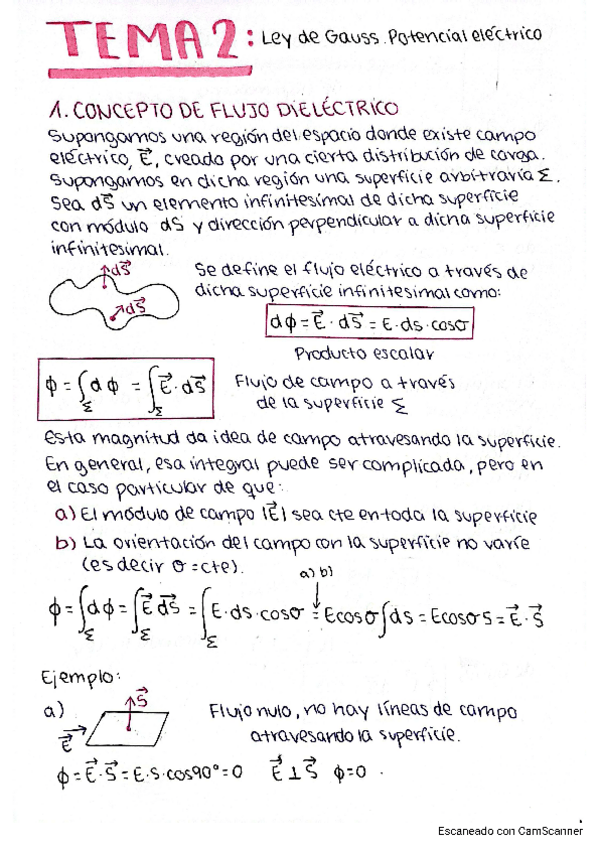 TEMA 2: Ley de Gauss. Potencial eléctrico
1. CONCEPTO DE FLUJO DIELÉCTRICO
Supongamos una región del espacio donde existe campo
eléctrico, E⃗, creado por una cierta distribución de carga.
Supongamos en dicha región una superficie arbitraria Σ.
Sea dS⃗ un elemento infinitesimal de dicha superficie
con módulo dS y dirección perpendicular a dicha superficie
infinitesimal.
dS⃗
dS⃗
Se define el flujo eléctrico a través de
dicha superficie infinitesimal como:
dϕ = E⃗ · dS⃗ = E·ds·cosσ
Producto escalar
ϕ = ∫_Σ dϕ = ∫_Σ E⃗ · dS⃗
Flujo de campo a través
de la superficie Σ
Esta magnitud da idea de campo atravesando la superficie.
En general, esa integral puede ser complicada, pero en
el caso particular de que:
a) El módulo de campo |E⃗| sea cte en toda la superficie
b) La orientación del campo con la superficie no varíe
(es decir σ = cte).
a) b)
ϕ = ∫_Σ dϕ = ∫_Σ E⃗ dS⃗ = ∫_Σ E·ds·cosσ = Ecosσ∫ds = Ecosσ S = E⃗ · S⃗
Ejemplo:
a)
S⃗
E⃗
Flujo nulo, no hay líneas de campo
atravesando la superficie.
ϕ = E⃗·S⃗ = E·S·cos90° = 0 E⃗ ⊥ S⃗ ϕ = 0
Escaneado con CamScanner